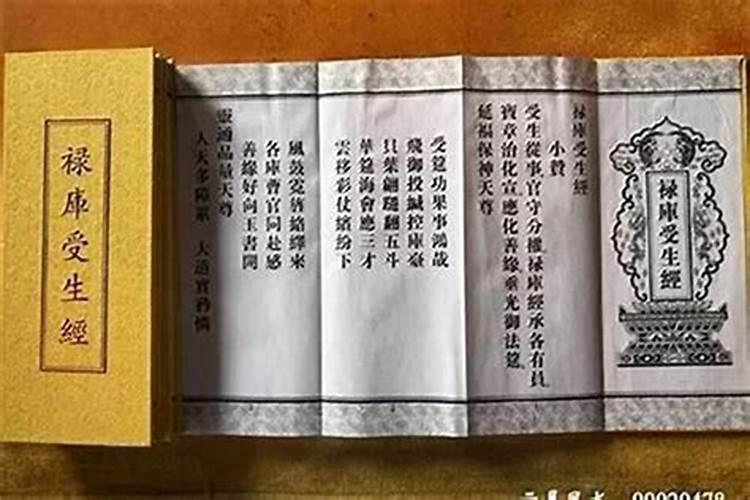 祿庫受生經
祿庫受生經
祿庫受生經
小贊
受生從事官守分權祿庫經承各有員
寶章治化宣應化善緣垂光御法筵
延福保神天尊
受筵功果事鴻哉
飛御投緘控庫臺
貝葉翩翻五斗
華筵海會應三才
雲移彩仗繽紛下
風鼓霓旌絡繹來
各庫曹官同赴感
善緣好向玉書開
靈通品量天尊
人天多障累 大道實矜憐
99029478